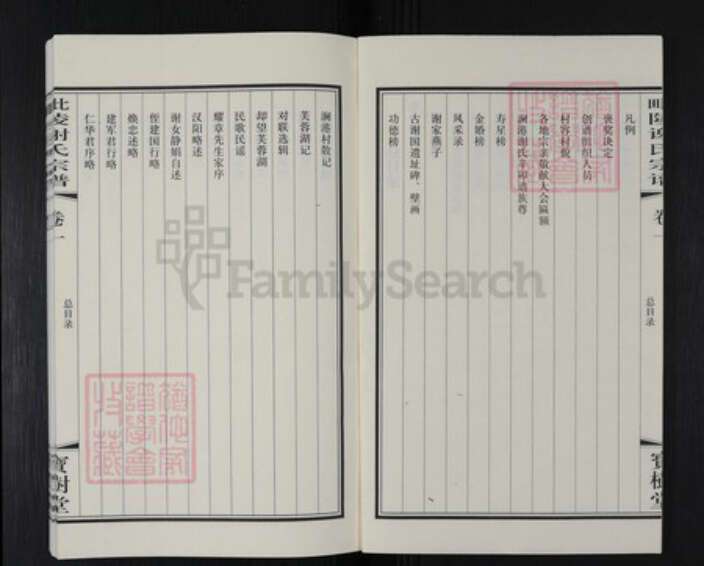 毗陵谢氏宗谱
卷一
总目录
寳樹堂
凡例
褒奖决定
创谱组织人员
村容村貌
各地宗亲敬献大会匾额
澜港谢氏辛卯造族尊
寿星榜
金婚榜
风采录
谢家燕子
古谢国遗址碑、壁画
功德榜
澜港村散记
芙蓉湖记
对联选辑
却望芙蓉湖
民歌民谣
耀章先生家序
汉阳略述
谢女静娟自述
侄建国行略
焕忠述略
建军君行略
仁华君序略
毗陵谢氏宗谱
卷一
总目录
寳樹堂
FamilySearch